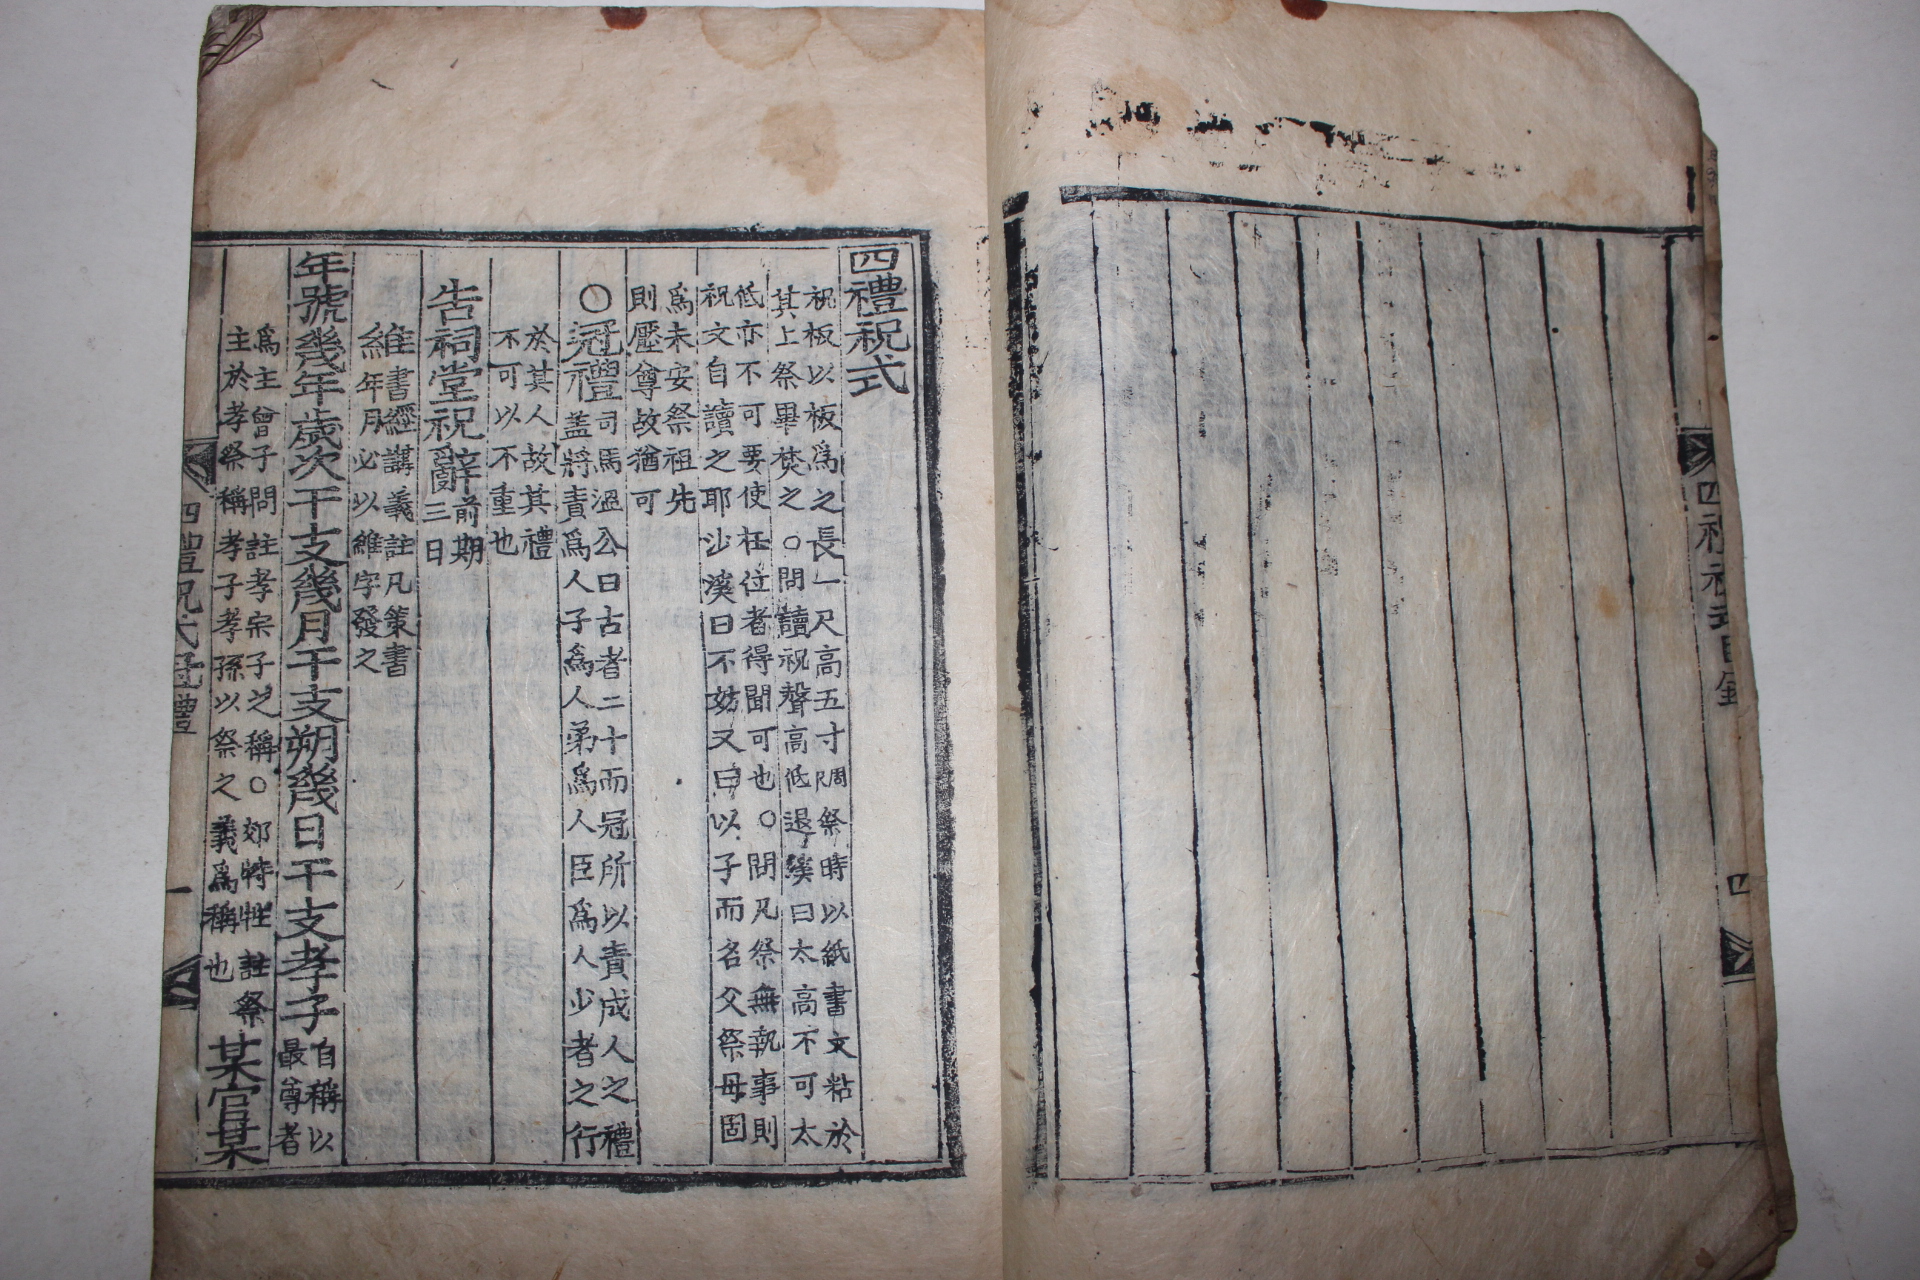 四禮祝式
祝板以板爲之長一尺高五寸周祭時以紙書文粘於
其上祭畢焚之○問讀祝聲高低退溪曰太高不可太
低亦不可要使在位者得聞可也○問凡祭無執事則
祝文自讀之耶沙溪曰不妨又曰以子而名父祭母固
爲未安祭祖先
則壓尊故猶可
○冠禮
司馬溫公曰古者二十而冠所以責成人之禮
蓋將責爲人子爲人弟爲人臣爲人少者之行
於其人故其禮
不可以不重也
告祠堂祝辭
前期
三日
維
書經講義註凡策書
年月必以維字發之
年號幾年歲次干支幾月干支朔幾日干支孝子
自稱以
最尊者
爲主曾子問註孝宗子之稱○郊特牲註祭
主於孝祭稱孝子孝孫以祭之義爲稱也
某官某
四禮祝式 冠禮
一
四禮祝式目錄
四